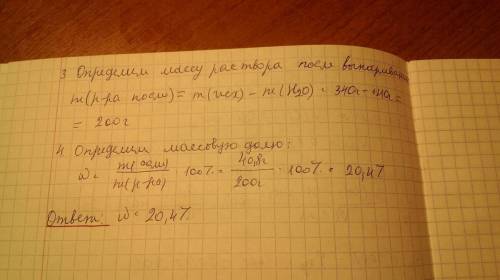 3. Определим массу раствора после выпаривания
m(р-ра после) = m(исх) - m(H2O) = 340г - 140г =
= 200г
4. Определим массовую долю:
ω = m(соли)/m(р-ра) · 100% = 40,8г/200г · 100% = 20,4%
Ответ: ω = 20,4%